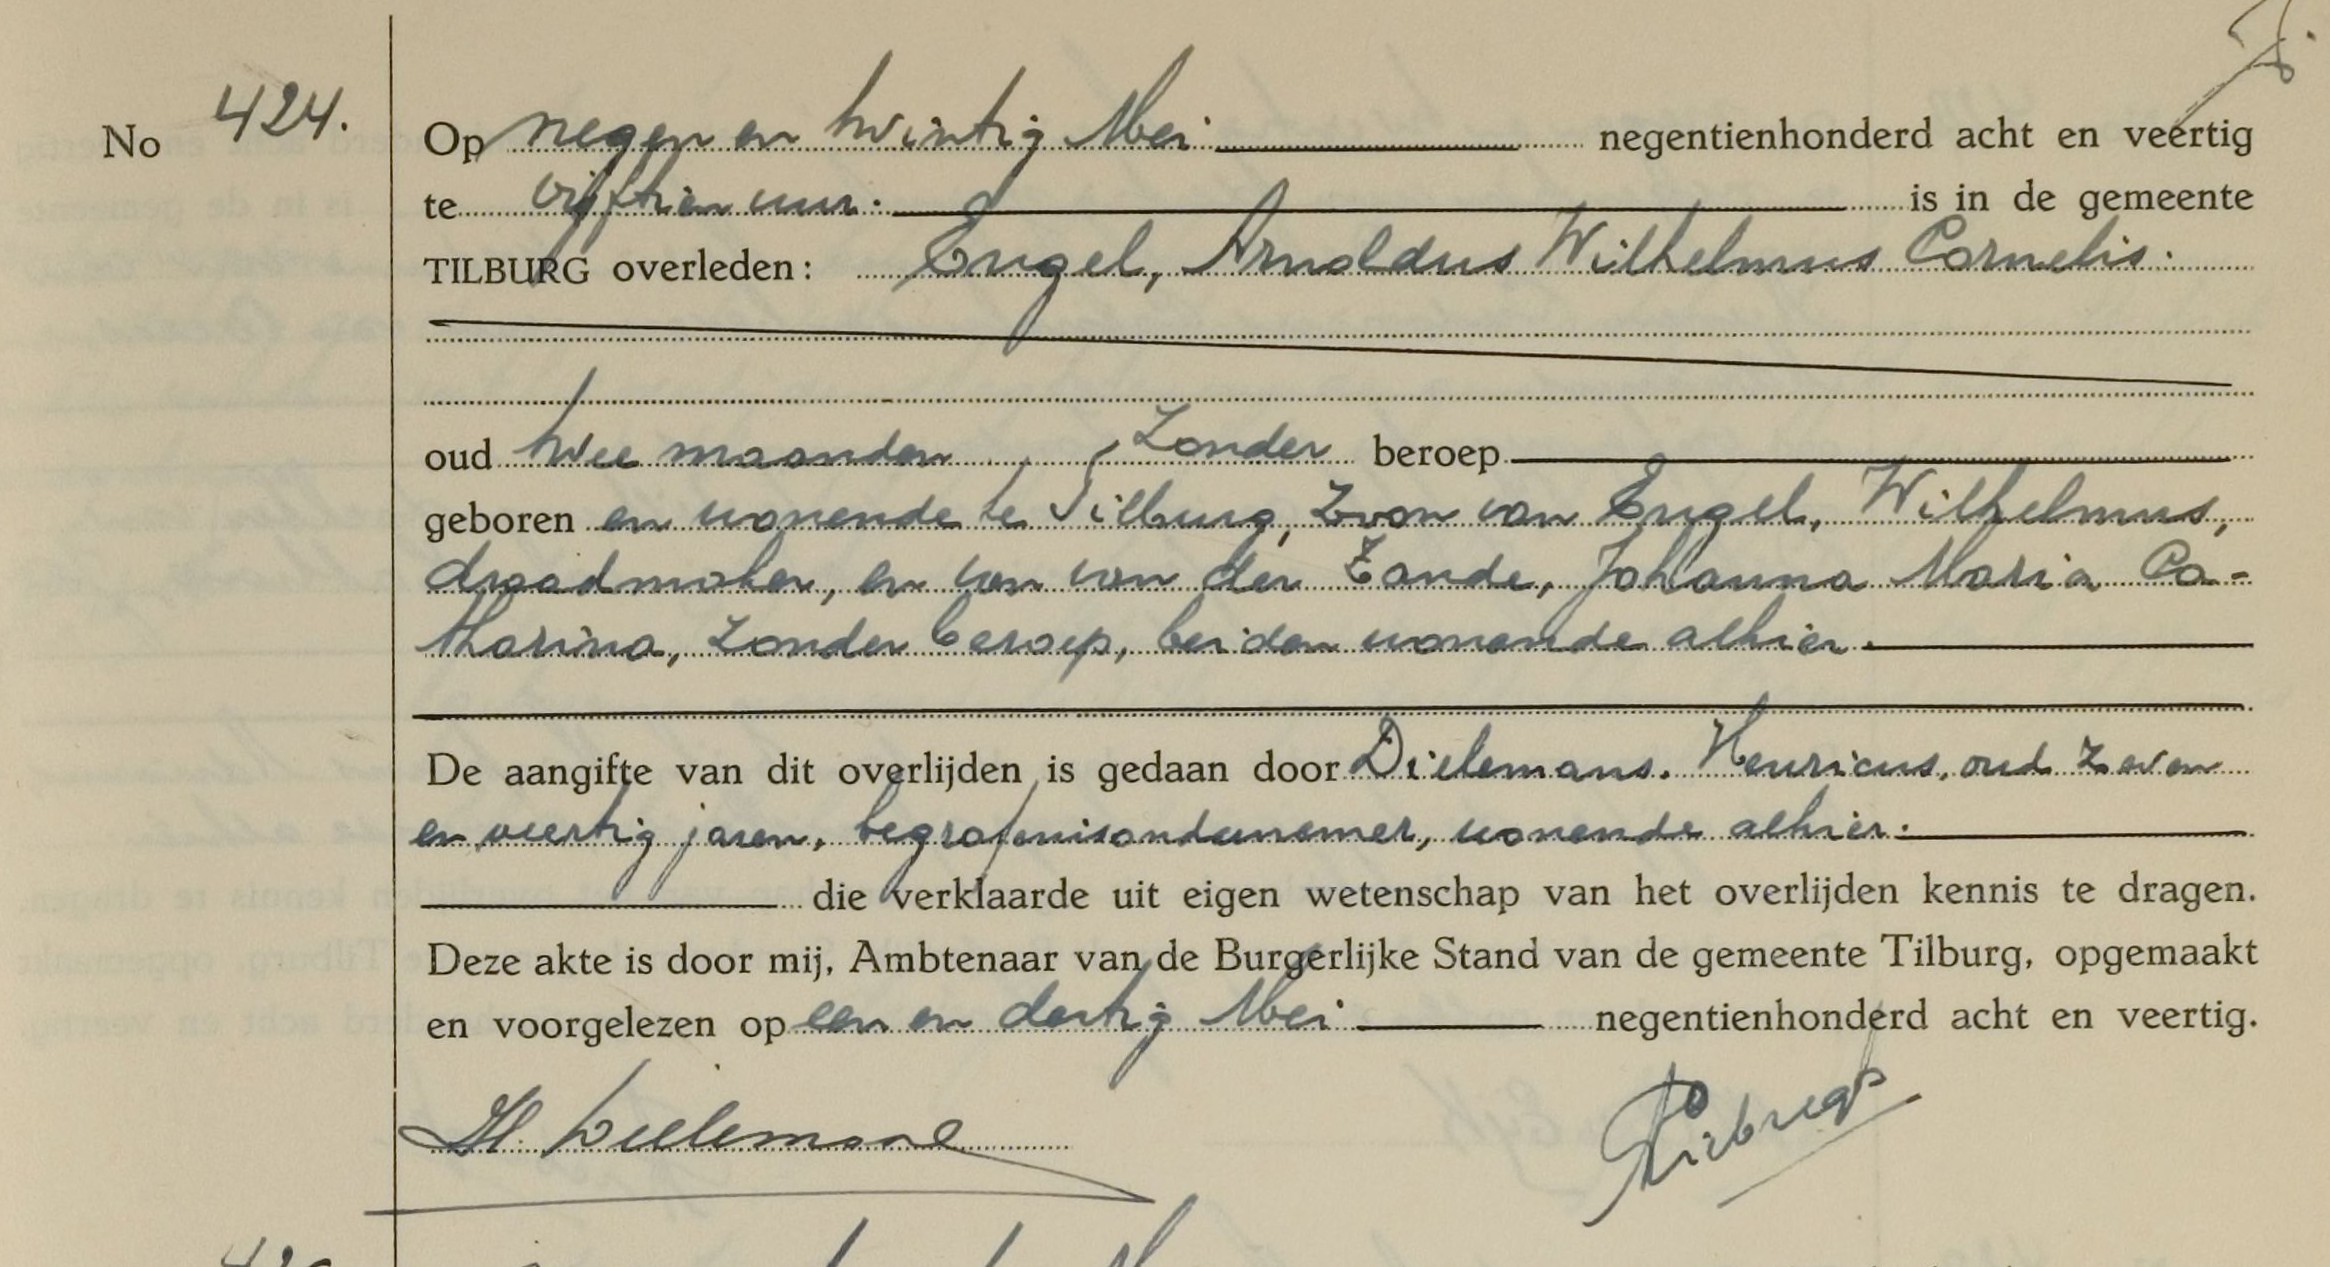 No 424.
Op negen en twintig Mei negentienhonderd acht en veertig
te vijftien uur. is in de gemeente
TILBURG overleden: Engel, Arnoldus Wilhelmus Cornelis.
oud twee maanden, zonder beroep
geboren en wonende te Tilburg, zoon van Engel, Wilhelmus,
draadmaker, en van van der Zande, Johanna Maria Ca-
tharina, zonder beroep, beiden wonende alhier.
De aangifte van dit overlijden is gedaan door Dielemans. Henricus, oud zeven
en veertig jaren, begrafenisondernemer, wonende alhier.
die verklaarde uit eigen wetenschap van het overlijden kennis te dragen.
Deze akte is door mij, Ambtenaar van de Burgerlijke Stand van de gemeente Tilburg, opgemaakt
en voorgelezen op een en dertig Mei negentienhonderd acht en veertig.
H. Dielemans